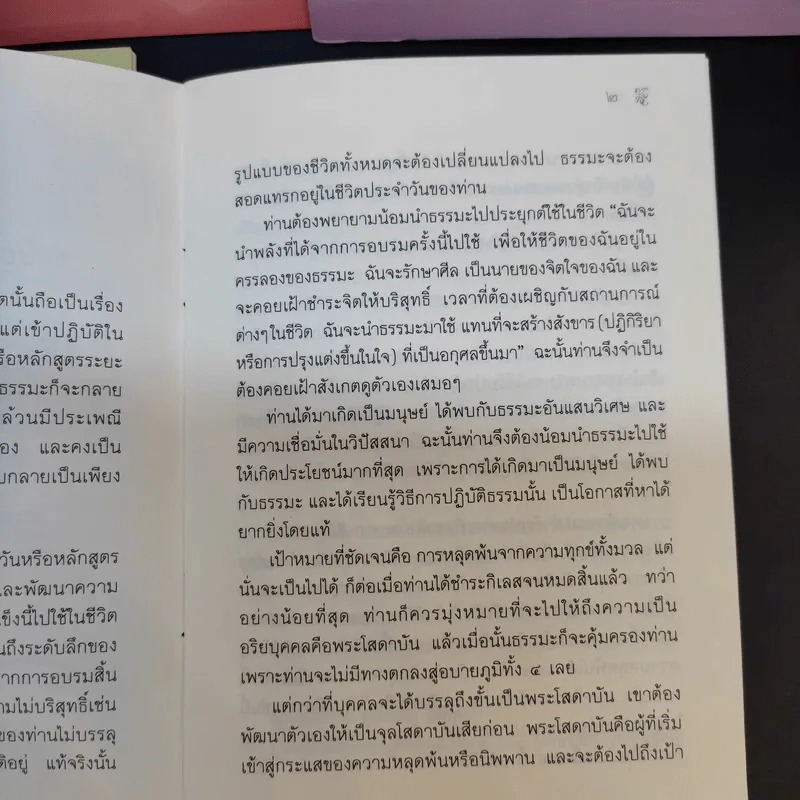 ดนั้นถือเป็นเรื่อง
แต่เข้าปฏิบัติใน
รือหลักสูตรระยะ
ธรรมะก็จะกลาย
ล้วนมีประเพณี
อง และคงเป็น
บกลายเป็นเพียง
วันหรือหลักสูตร
และพัฒนาความ
ข็งนี้ไปใช้ในชีวิต
นถึงระดับลึกของ
จากการอบรมสิ้น
ามไม่บริสุทธิ์เช่น
ของท่านไม่บรรลุ
ติอยู่ แท้จริงนั้น
๒
รูปแบบของชีวิตทั้งหมดจะต้องเปลี่ยนแปลงไป ธรรมะจะต้อง
สอดแทรกอยู่ในชีวิตประจำวันของท่าน
ท่านต้องพยายามน้อมนำธรรมะไปประยุกต์ใช้ในชีวิต “ฉันจะ
นำพลังที่ได้จากการอบรมครั้งนี้ไปใช้ เพื่อให้ชีวิตของฉันอยู่ใน
ครรลองของธรรมะ ฉันจะรักษาศีล เป็นนายของจิตใจของฉัน และ
จะคอยเฝ้าชำระจิตให้บริสุทธิ์ เวลาที่ต้องเผชิญกับสถานการณ์
ต่างๆในชีวิต ฉันจะนำธรรมะมาใช้ แทนที่จะสร้างสังขาร (ปฏิกิริยา
หรือการปรุงแต่งขึ้นในใจ) ที่เป็นอกุศลขึ้นมา” ฉะนั้นท่านจึงจำเป็น
ต้องคอยเฝ้าสังเกตดูตัวเองเสมอๆ
ท่านได้มาเกิดเป็นมนุษย์ ได้พบกับธรรมะอันแสนวิเศษ และ
มีความเชื่อมั่นในวิปัสสนา ฉะนั้นท่านจึงต้องน้อมนำธรรมะไปใช้
ให้เกิดประโยชน์มากที่สุด เพราะการได้เกิดมาเป็นมนุษย์ ได้พบ
กับธรรมะ และได้เรียนรู้วิธีการปฏิบัติธรรมนั้น เป็นโอกาสที่หาได้
ยากยิ่งโดยแท้
เป้าหมายที่ชัดเจนคือ การหลุดพ้นจากความทุกข์ทั้งมวล แต่
นั่นจะเป็นไปได้ ก็ต่อเมื่อท่านได้ชำระกิเลสจนหมดสิ้นแล้ว ทว่า
อย่างน้อยที่สุด ท่านก็ควรมุ่งหมายที่จะไปให้ถึงความเป็น
อริยบุคคลคือพระโสดาบัน แล้วเมื่อนั้นธรรมะก็จะคุ้มครองท่าน
เพราะท่านจะไม่มีทางตกลงสู่อบายภูมิทั้ง ๔ เลย
แต่กว่าที่บุคคลจะได้บรรลุถึงขั้นเป็นพระโสดาบัน เขาต้อง
พัฒนาตัวเองให้เป็นจุลโสดาบันเสียก่อน พระโสดาบันคือผู้ที่เริ่ม
เข้าสู่กระแสของความหลุดพ้นหรือนิพพาน และจะต้องไปถึงเป้า